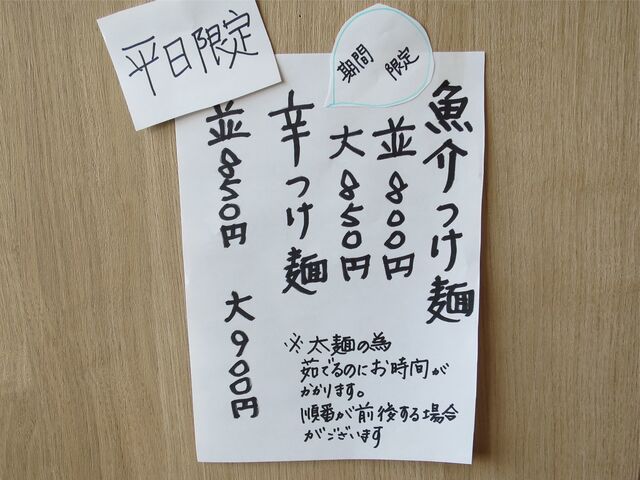 平日限定
期間
限定
魚介つけ麺
並800円
大850円
辛つけ麺
並850円 大900円
※太麺の為
茹でるのにお時間が
かかります。
順番が前後する場合
がございます